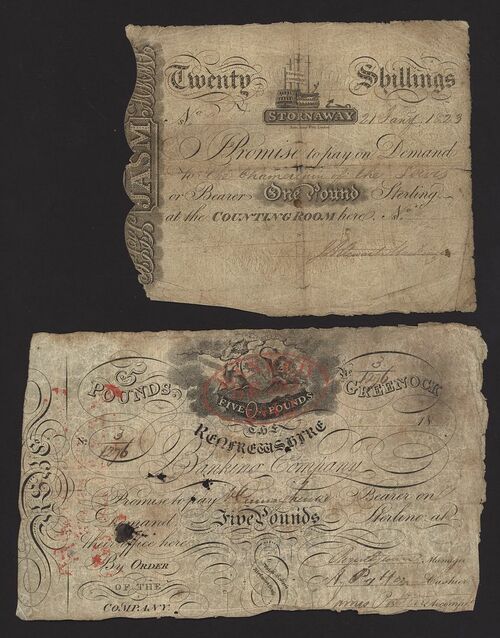 Twenty Shillings
No
STORNAWAY
21 Jany 1823
JASM
I Promise to pay on Demand
to the Chamberlain of the Lewis
or Bearer One Pound Sterling
at the COUNTING ROOM here.
5 POUNDS
FIVE POUNDS
No 3/1276
GREENOCK
18
THE
RENFREWSHIRE
3/1276
Banking Company
Promise to pay Bearer on
Demand Five Pounds Sterling at
their Office here
By ORDER Manager
OF THE Cashier
COMPANY Accompt